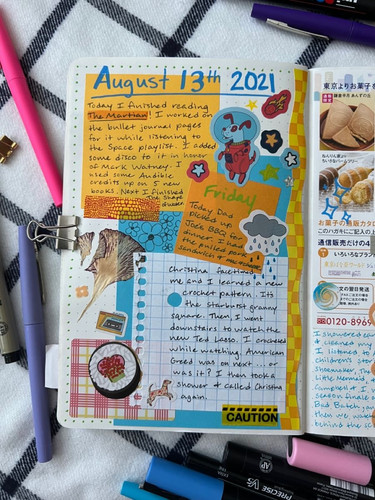 August 13th 2021
Today I finished reading
The Martian! I worked on
the bullet journal pages
for it while listening to
the Space playlist. I added
some disco to it in honor
of Mark Watney. I
used some Audible
credits up on 5 new
books. Next I finished
The Shape
of
Friday
Today Dad
picked up
Jack BBQ for
dinner. I had
the pulled pork
sandwich
Christina facetimed
me and I learned a new
crochet pattern. It's
the starburst granny
square. Then, I went
downstairs to watch the
new Ted Lasso. I crocheted
while watching. American
Greed was on next... or
was it? I then took a
shower & called Christina
again.
CAUTION
東京よりお菓子を
お菓子の通販カタロ
このハガキにご記入の上
通信販売だけの4
いろいろなランキ
文の翌日発送
0120-8969
I showered early
& cleaned my
I listened to
children's story
Shoemaker, The
Little Mermaid,
season finale
Bad Batch
then we watched
behind the sc
PRECISE V5
AP